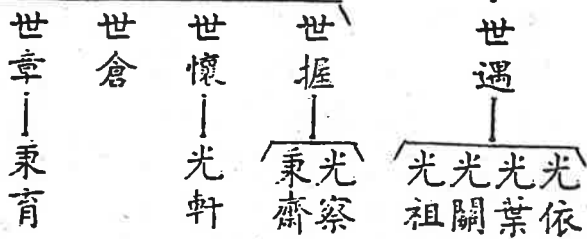 世遇
光依
光葉
光關
光祖
世握
光察
秉齋
世懷
光軒
世倉
世章
秉育